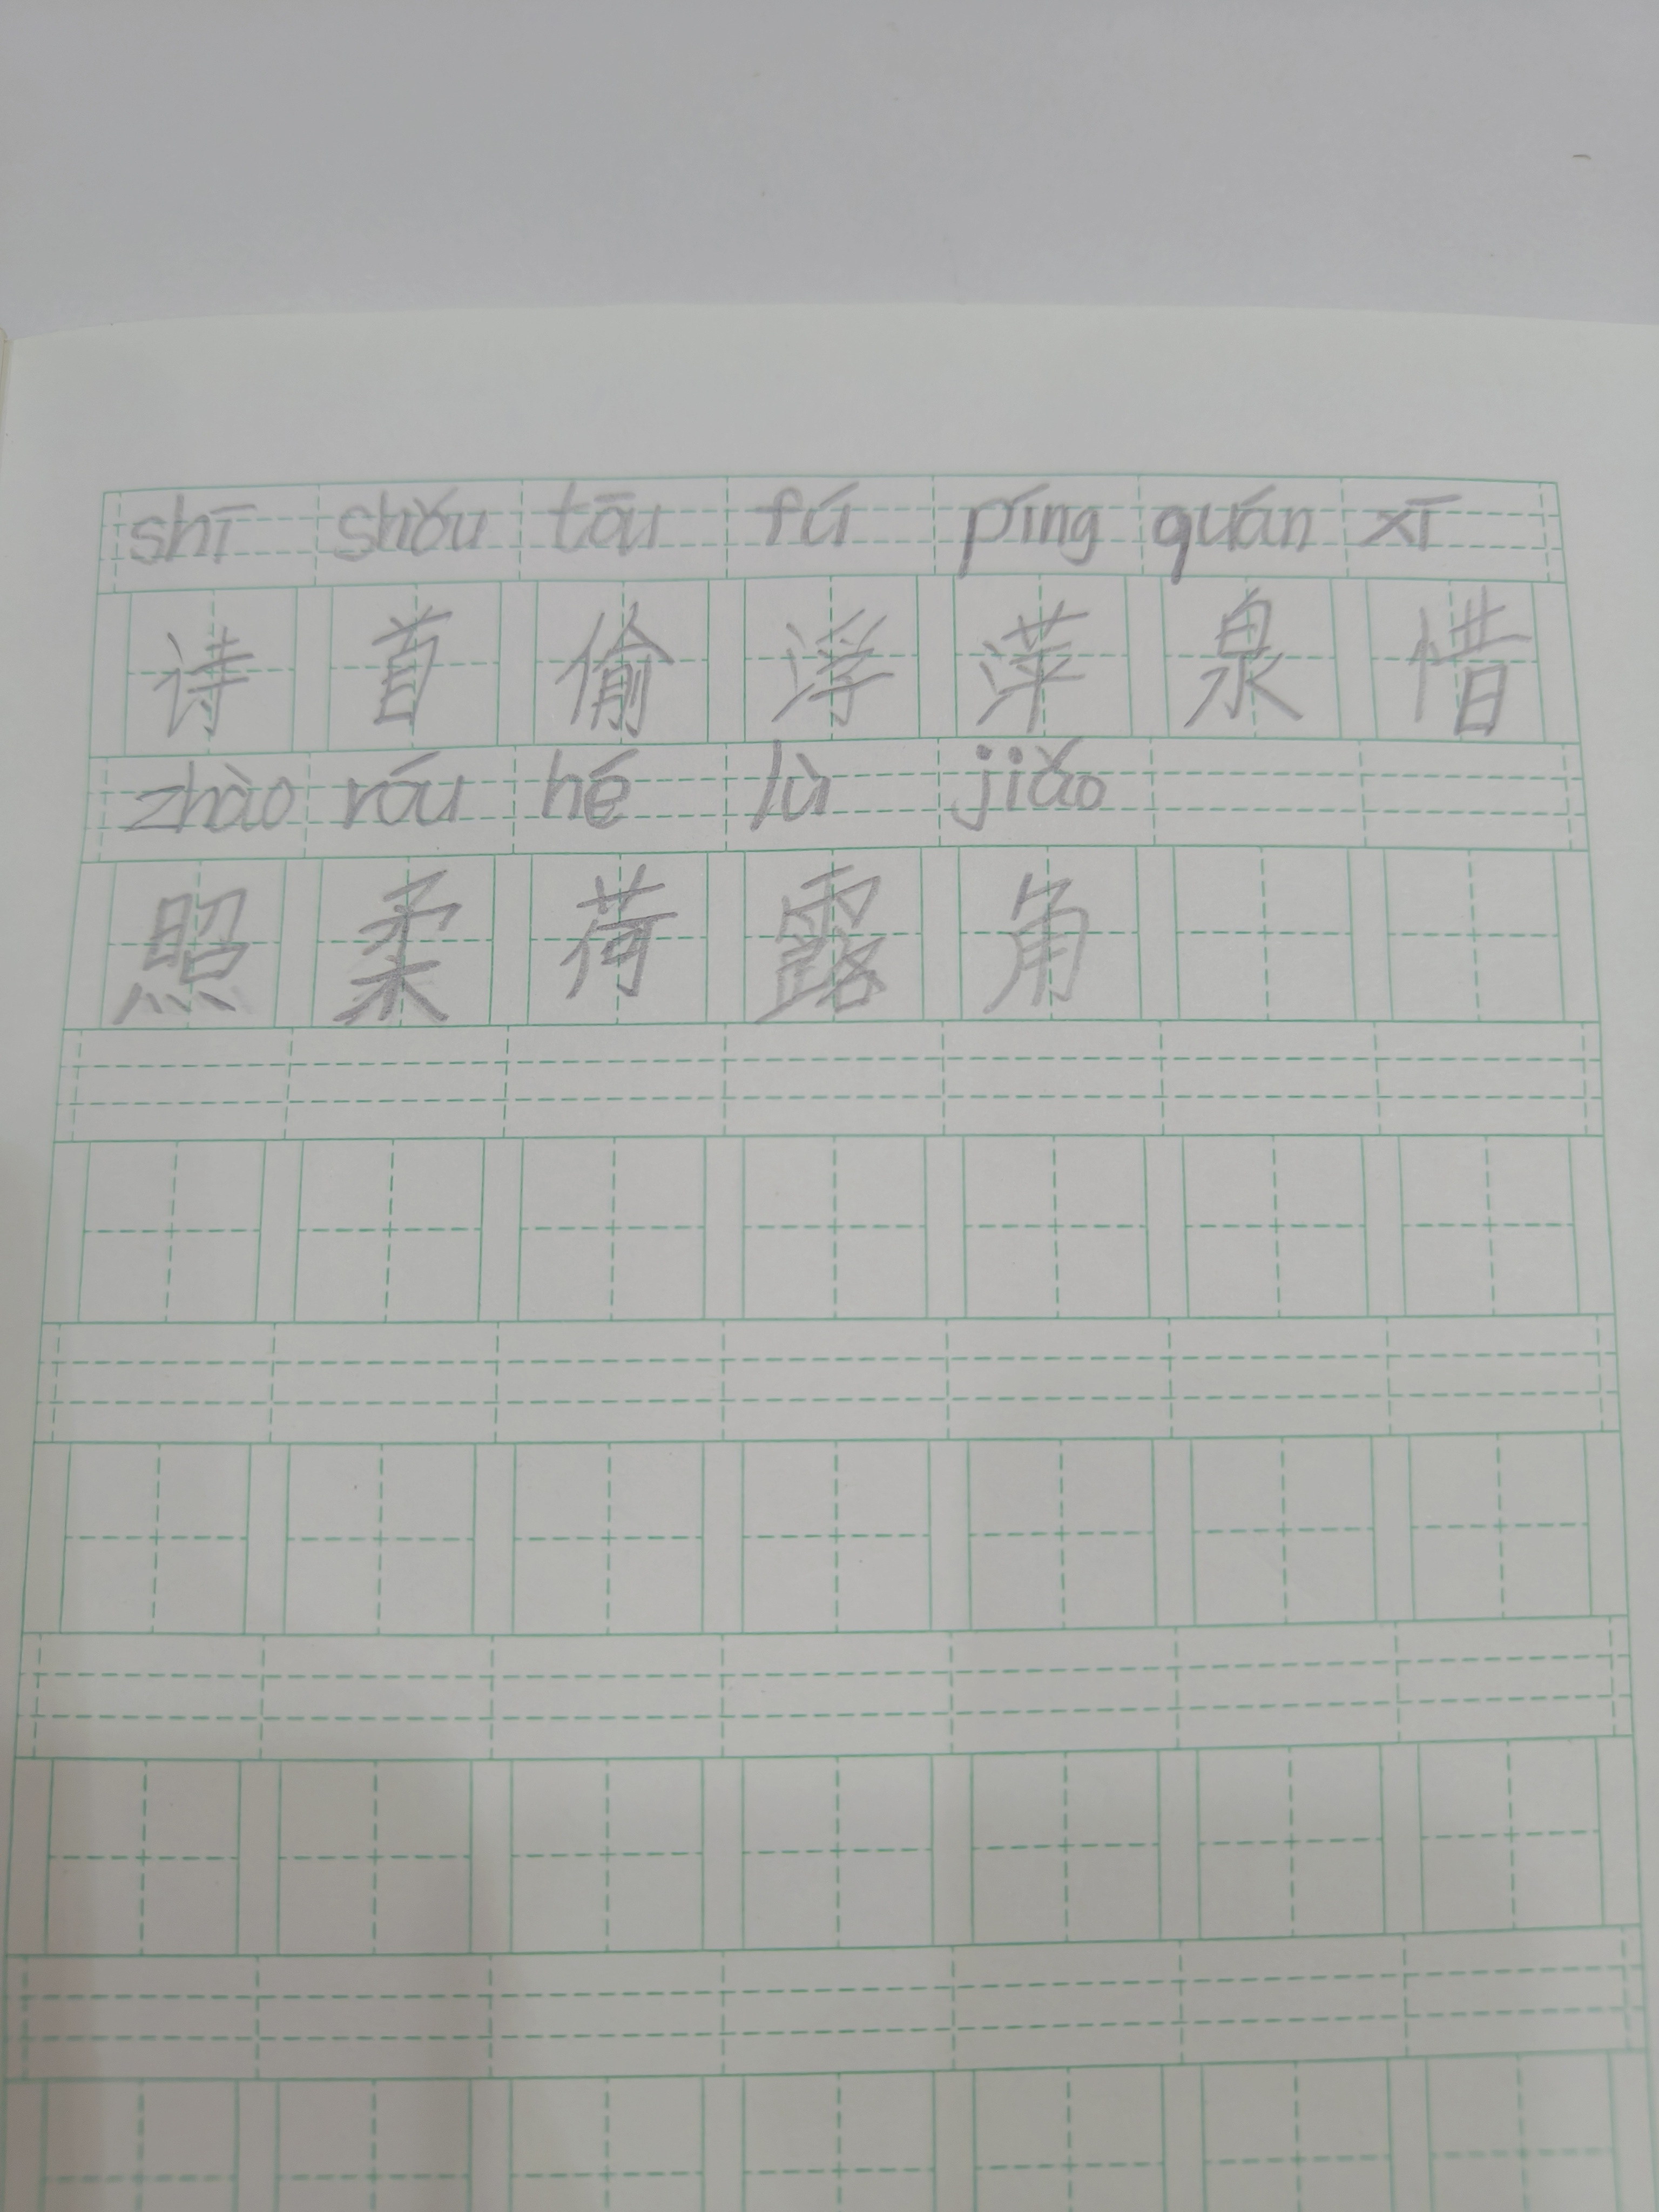 shī shǒu tōu fú píng quán xī
诗 首 偷 浮 萍 泉 惜
zhào róu hé lù jiǎo
照 柔 荷 露 角